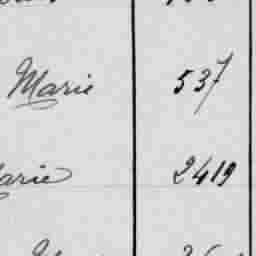 Marie 537
arie 2419